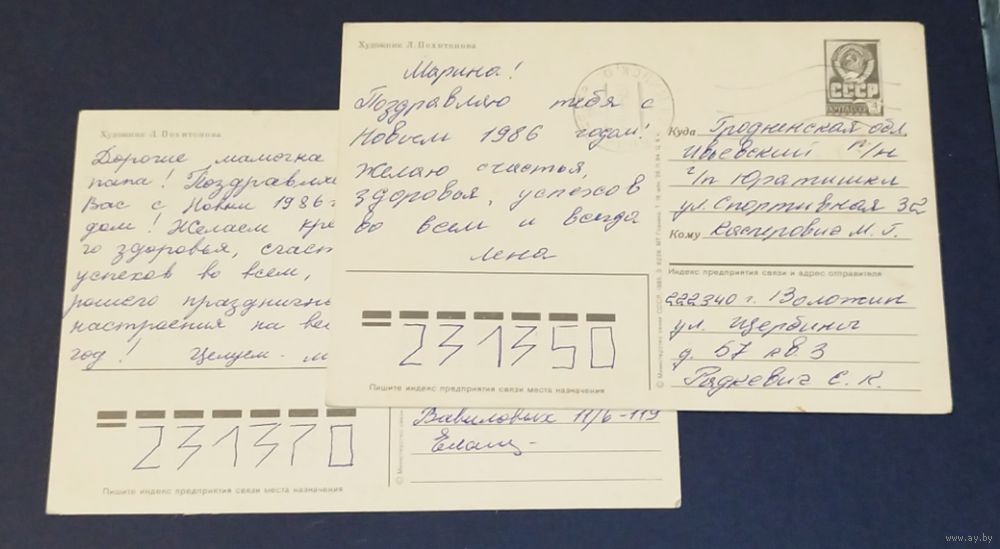 Художник Л. Похитонова
Марина!
Поздравляю тебя с
Новым 1986 годом!
Желаю счастья,
здоровья, успехов
во всем и всегда
Лена
231350
Пишите индекс предприятия связи места назначения
СССР
ПОЧТА СССР
4
Куда Гродненская обл
Ивьевский р/н
г/п Юратишки
ул. Спортивная 32
Кому Касперович М. Г.
Индекс предприятия связи и адрес отправителя
222340 г. Воложин
ул. Щербины
д. 57 кв. 3
Радкевич Е. К.
© Министерство связи СССР. 1985.
Художник Л. Похитонова
Дорогие мамочка
папа! Поздравляе
Вас с Новым 1986 г
дом! Желаем кре
го здоровья, счаст
успехов во всем,
рошего праздничн
настроения на ве
год! Целуем
231370
Пишите индекс предприятия связи места назначения
Вавиловых 11/6-119
© Министерство связи
www.ay.by